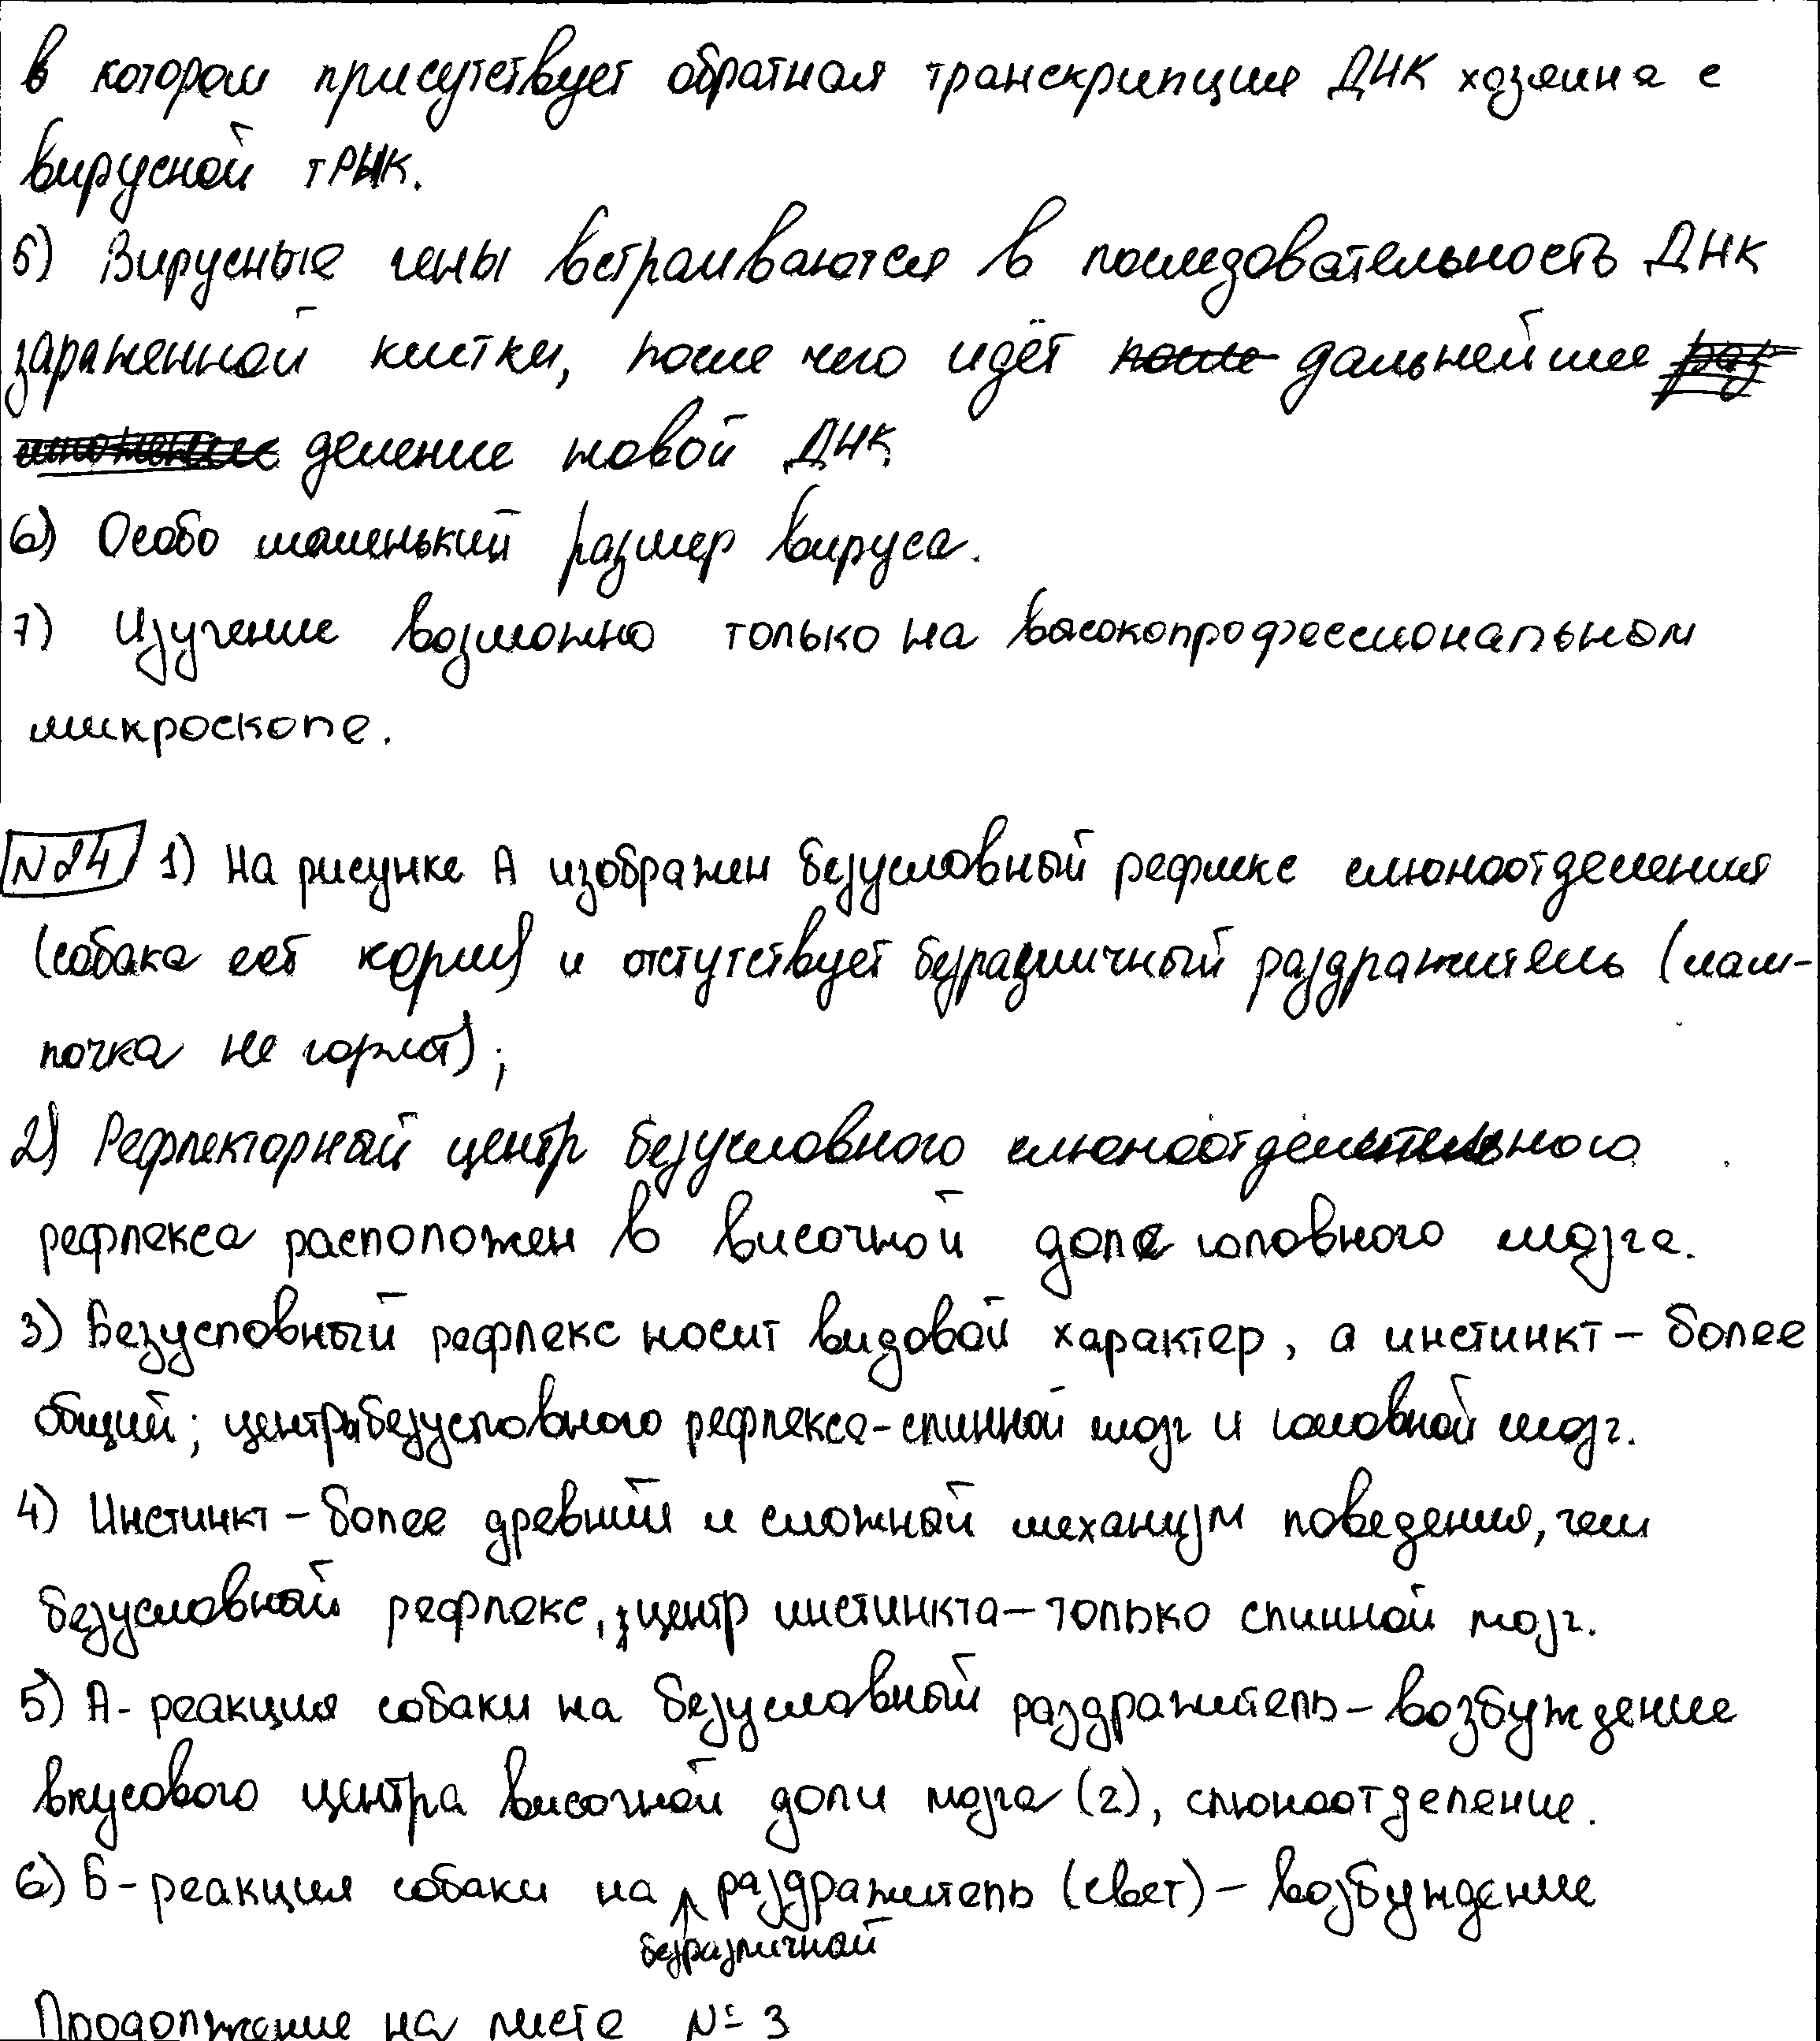 в котором присутствует обратная транскрипция ДНК хозяина с
вирусной тРНК.
5) Вирусные гены встраиваются в последовательность ДНК
зараженной клетки, после чего идёт после дальнейшее раз
множение деление новой ДНК.
6) Особо маленький размер вируса.
7) Изучение возможно только на высокопрофессиональном
микроскопе.
N24 1) На рисунке А изображен безусловный рефлекс слюноотделения
(собака ест корм) и отстутствует безразличный раздражитель (лам-
почка не горит);
2) Рефлекторный центр безусловного слюноотделительного
рефлекса расположен в височной доле головного мозга.
3) Безусловный рефлекс носит видовой характер, а инстинкт – более
общий; центры безусловного рефлекса - спинной мозг и головной мозг.
4) Инстинкт – более древний и сложный механизм поведения, чем
безусловный рефлекс, центр инстинкта – только спинной мозг.
5) А - реакция собаки на безусловный раздражитель – возбуждение
вкусового центра височной доли мозга (2), слюноотделение.
6) Б - реакция собаки на раздражитель (свет) – возбуждение
безразличный
Продолжение на листе № 3